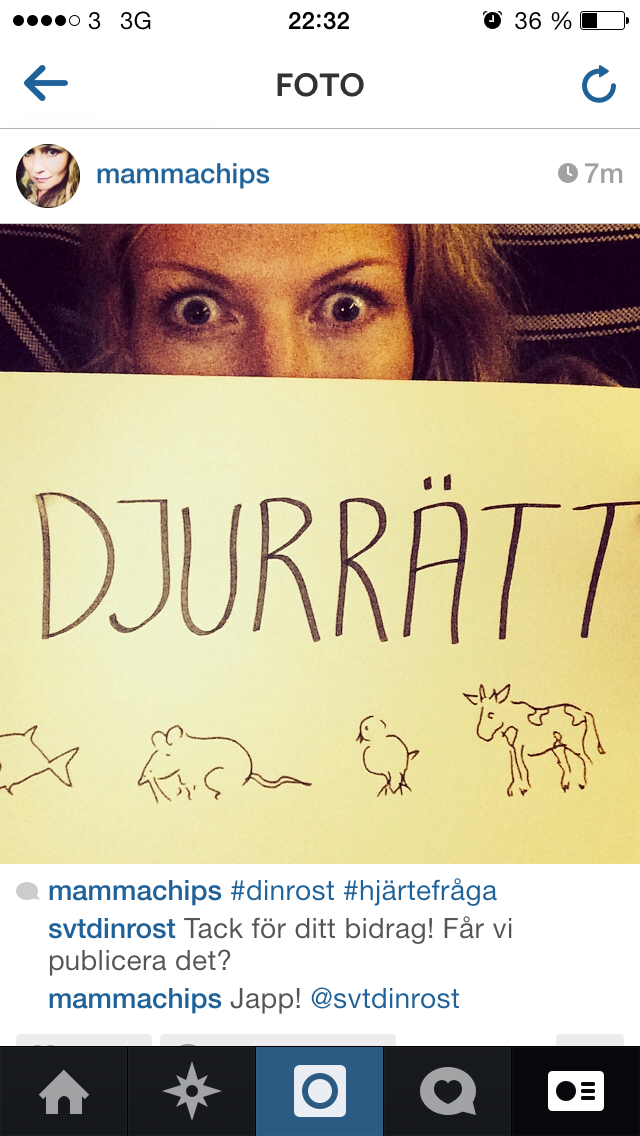 3 3G 22:32 36 %
FOTO
mammachips 7m
DJURRÄTT
mammachips #dinrost #hjärtefråga
svtdinrost Tack för ditt bidrag! Får vi
publicera det?
mammachips Japp! @svtdinrost